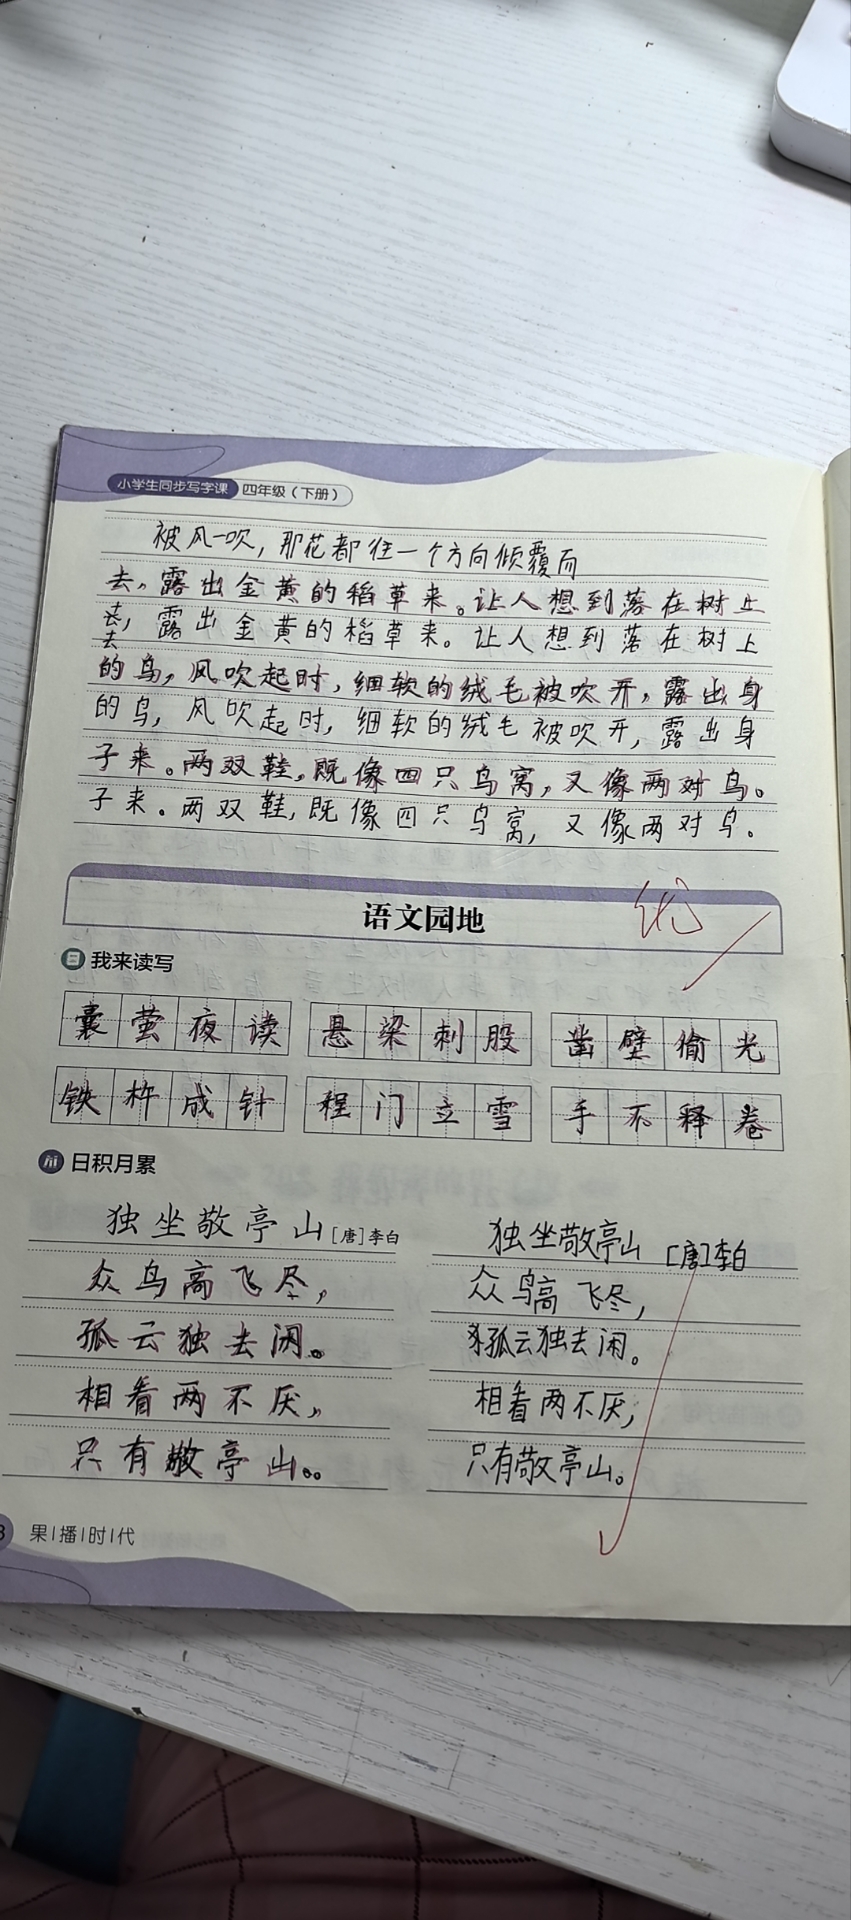 小学生同步写字课 四年级（下册）
被风一吹，那花都往一个方向倾覆而
去，露出金黄的稻草来。让人想到落在树上
去，露出金黄的稻草来。让人想到落在树上
去
的鸟，风吹起时，细软的绒毛被吹开，露出身
的鸟，风吹起时，细软的绒毛被吹开，露出身
子来。两双鞋，既像四只鸟窝，又像两对鸟。
子来。两双鞋，既像四只鸟窝，又像两对鸟。
语文园地
优
我来读写
囊萤夜读 悬梁刺股 凿壁偷光
铁杵成针 程门立雪 手不释卷
日积月累
独坐敬亭山[唐]李白
众鸟高飞尽，
孤云独去闲。
相看两不厌，
只有敬亭山。
独坐敬亭山 [唐]李白
众鸟高飞尽，
孤云独去闲。
相看两不厌，
只有敬亭山。
果播时代